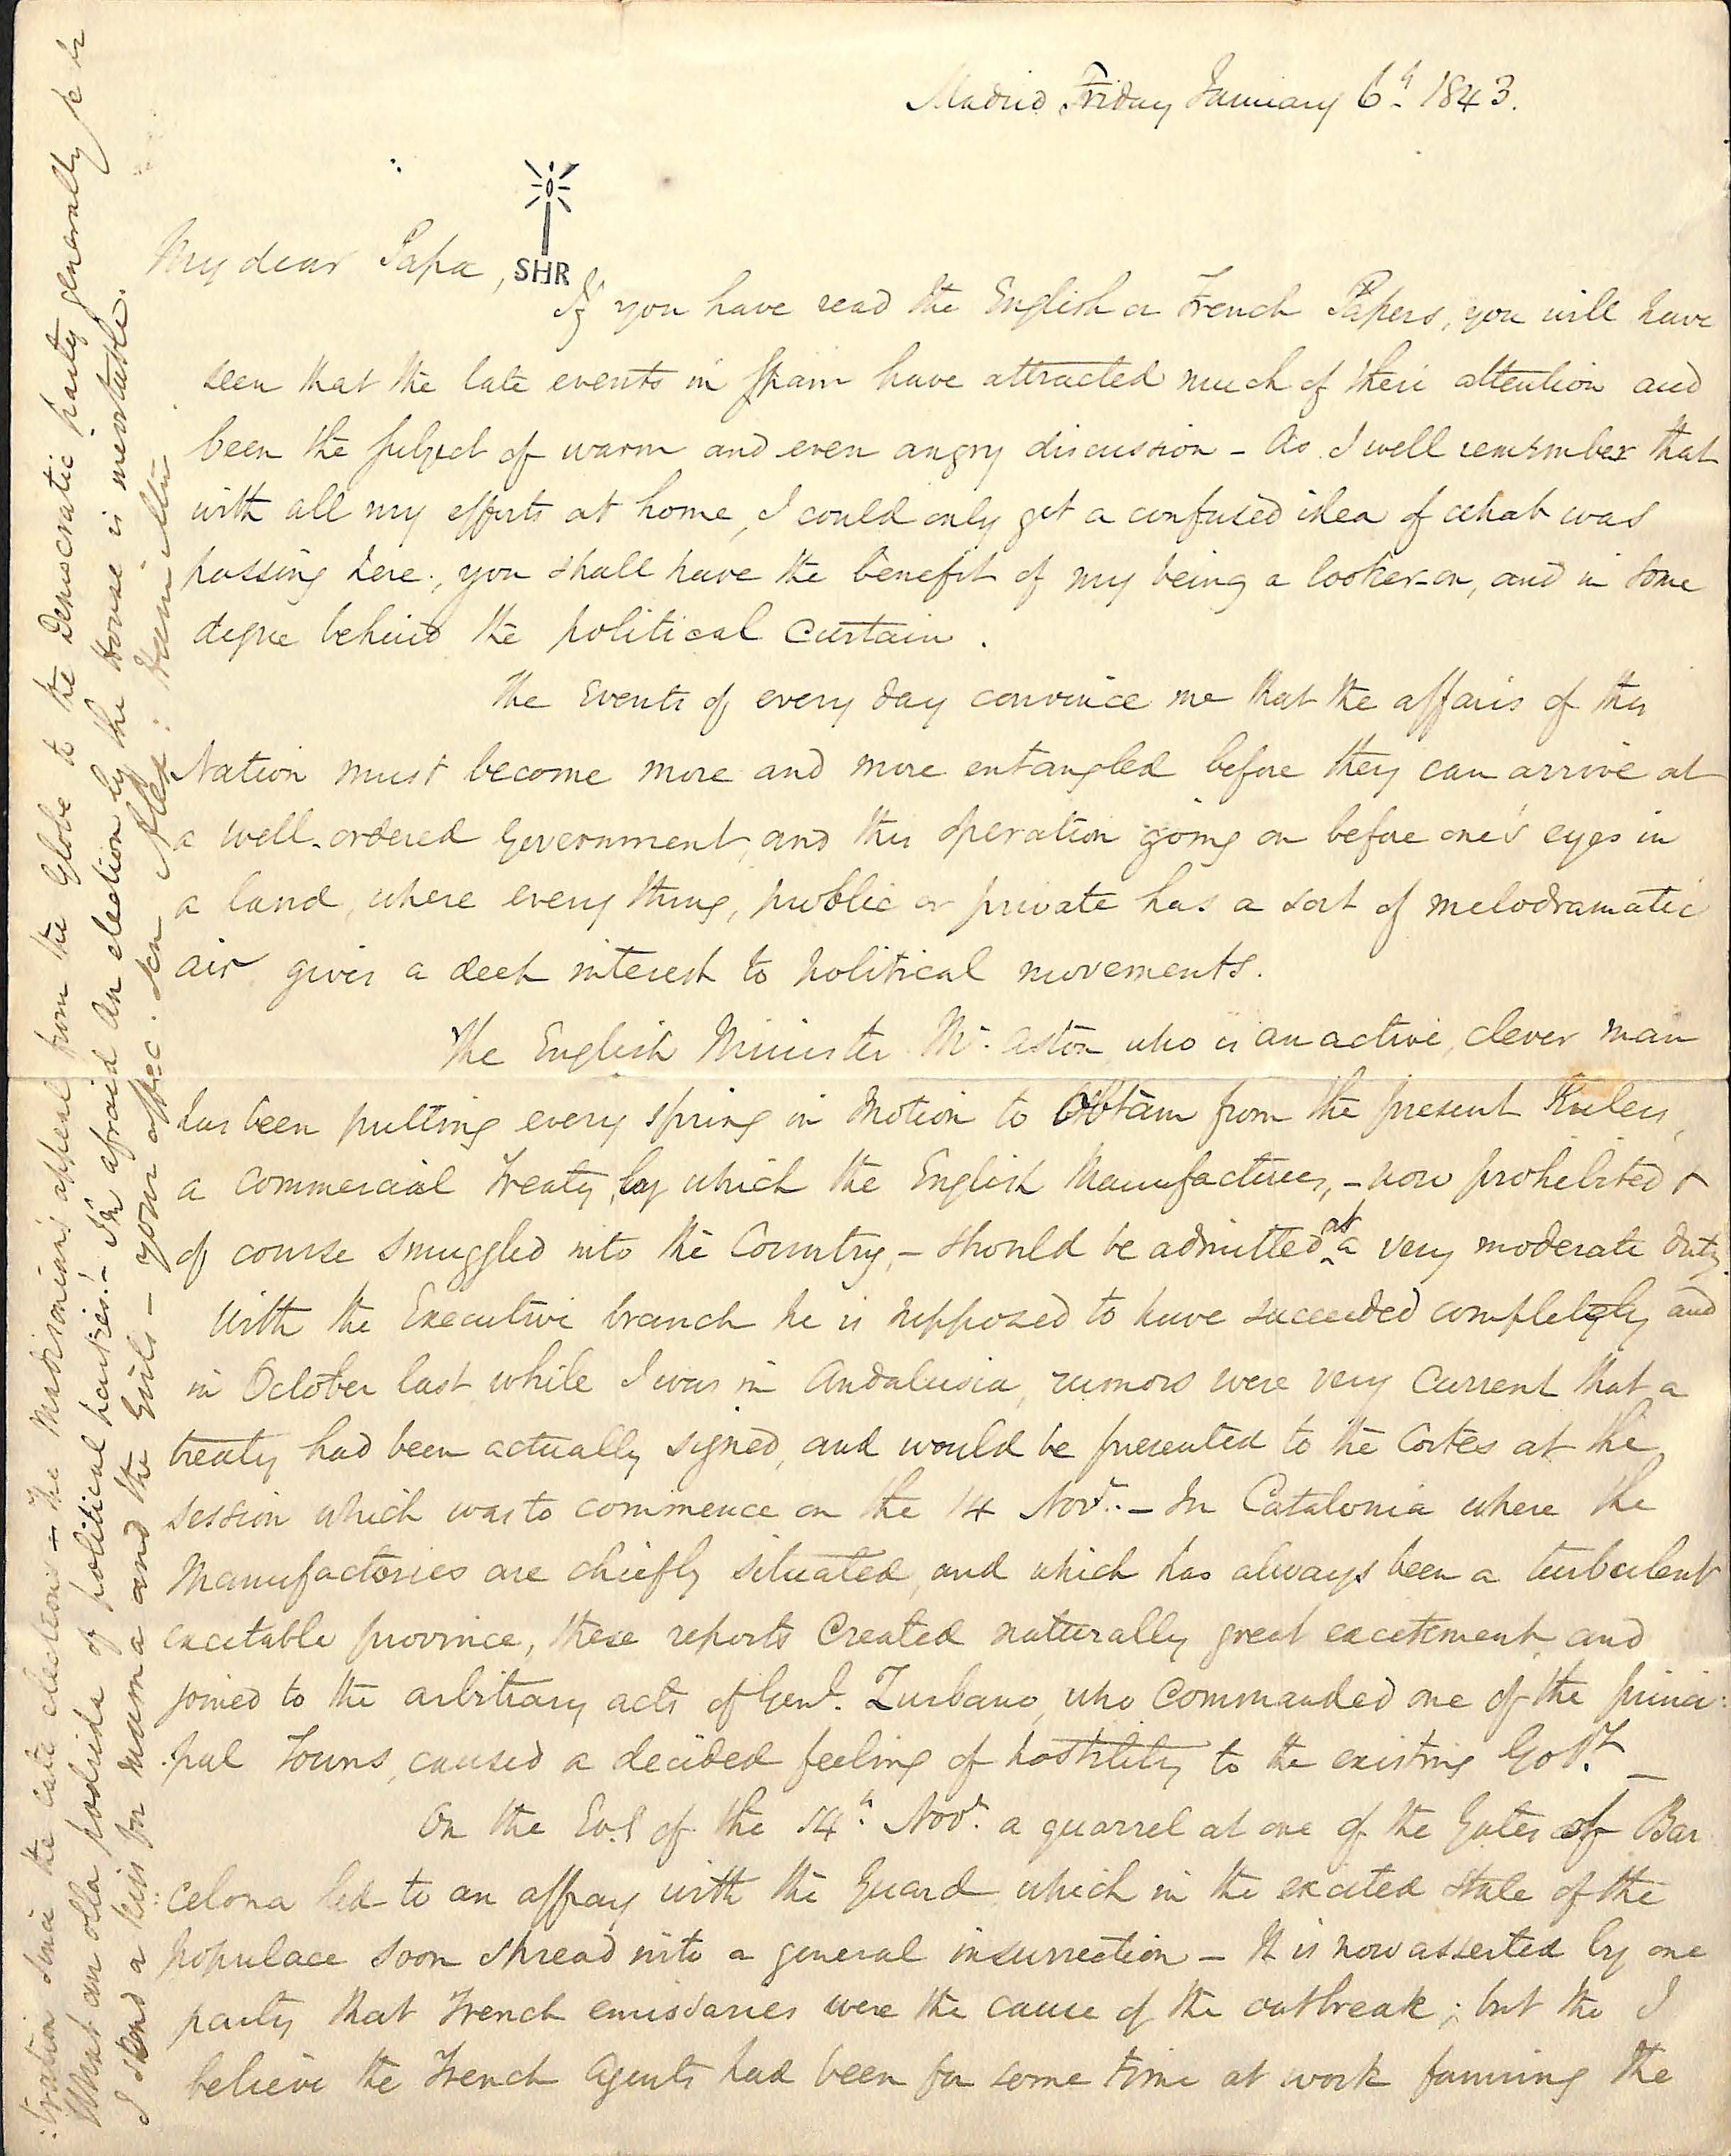 Madrid Friday January 6th 1843.
My dear Papa,
SHR
If you have read the English or French Papers, you will have
seen that the late events in Spain have attracted much of their attention and
been the subject of warm and even angry discussion - As I well remember that
with all my efforts at home, I could only get a confused idea of what was
passing here, you shall have the benefit of my being a looker-on, and in some
degree behind the political curtain.
The Events of every day convince me that the affairs of this
Nation must become more and more entangled before they can arrive at
a well-ordered Government, and this operation going on before one's eyes in
a land, where every thing, public or private has a sort of melodramatic
air gives a deep interest to political movements.
The English Minister Mr. Aston who is an active, clever man
has been putting every spring in motion to obtain from the present Rulers,
a commercial Treaty, by which the English Manufactures, - now prohibited &
of course smuggled into the Country, - should be admitted at a very moderate duty.
With the Executive branch he is supposed to have succeeded completely, and
in October last while I was in Andalusia, rumors were very current that a
treaty had been actually signed, and would be presented to the Cortes at the
session which was to commence on the 14 Novr. - In Catalonia where the
Manufactories are chiefly situated, and which has always been a turbulent
excitable province, these reports created naturally great excitement, and
joined to the arbitrary acts of Genl. Zurbano, who commanded one of the princi-
pal Towns, caused a decided feeling of hostility to the existing Govt. -
On the Evg of the 14th Novr. a quarrel at one of the Gates of Bar
celona led to an affray with the Guard which in the excited state of the
populace soon spread into a general insurrection - It is now asserted by one
party that French emissaries were the cause of the outbreak; but tho I
believe the French Agents had been for some time at work fanning the
:tration since the late elections - The Madisonian's appeal from the Globe to the Democratic party generally
What an olla podrida of political parties! - I'm afraid an election by the House is inevitable.
I send a kiss for Mama and the Girls - your affec. Son Alex: Hamilton